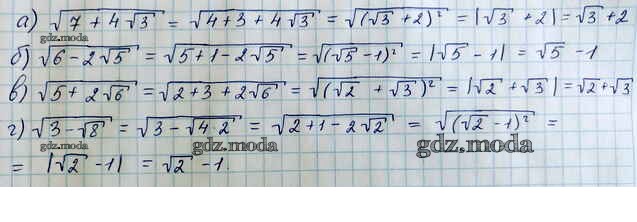 а) √(7 + 4√3) = √(4 + 3 + 4√3) = √((√3 + 2)²) = |√3 + 2| = √3 + 2
gdz.moda
б) √(6 − 2√5) = √(5 + 1 − 2√5) = √((√5 − 1)²) = |√5 − 1| = √5 − 1
gdz.moda
в) √(5 + 2√6) = √(2 + 3 + 2√6) = √((√2 + √3)²) = |√2 + √3| = √2 + √3
г) √(3 − √8) = √(3 − √(4·2)) = √(2 + 1 − 2√2) = √((√2 − 1)²) =
gdz.moda gdz.moda gdz.moda
= |√2 − 1| = √2 − 1.